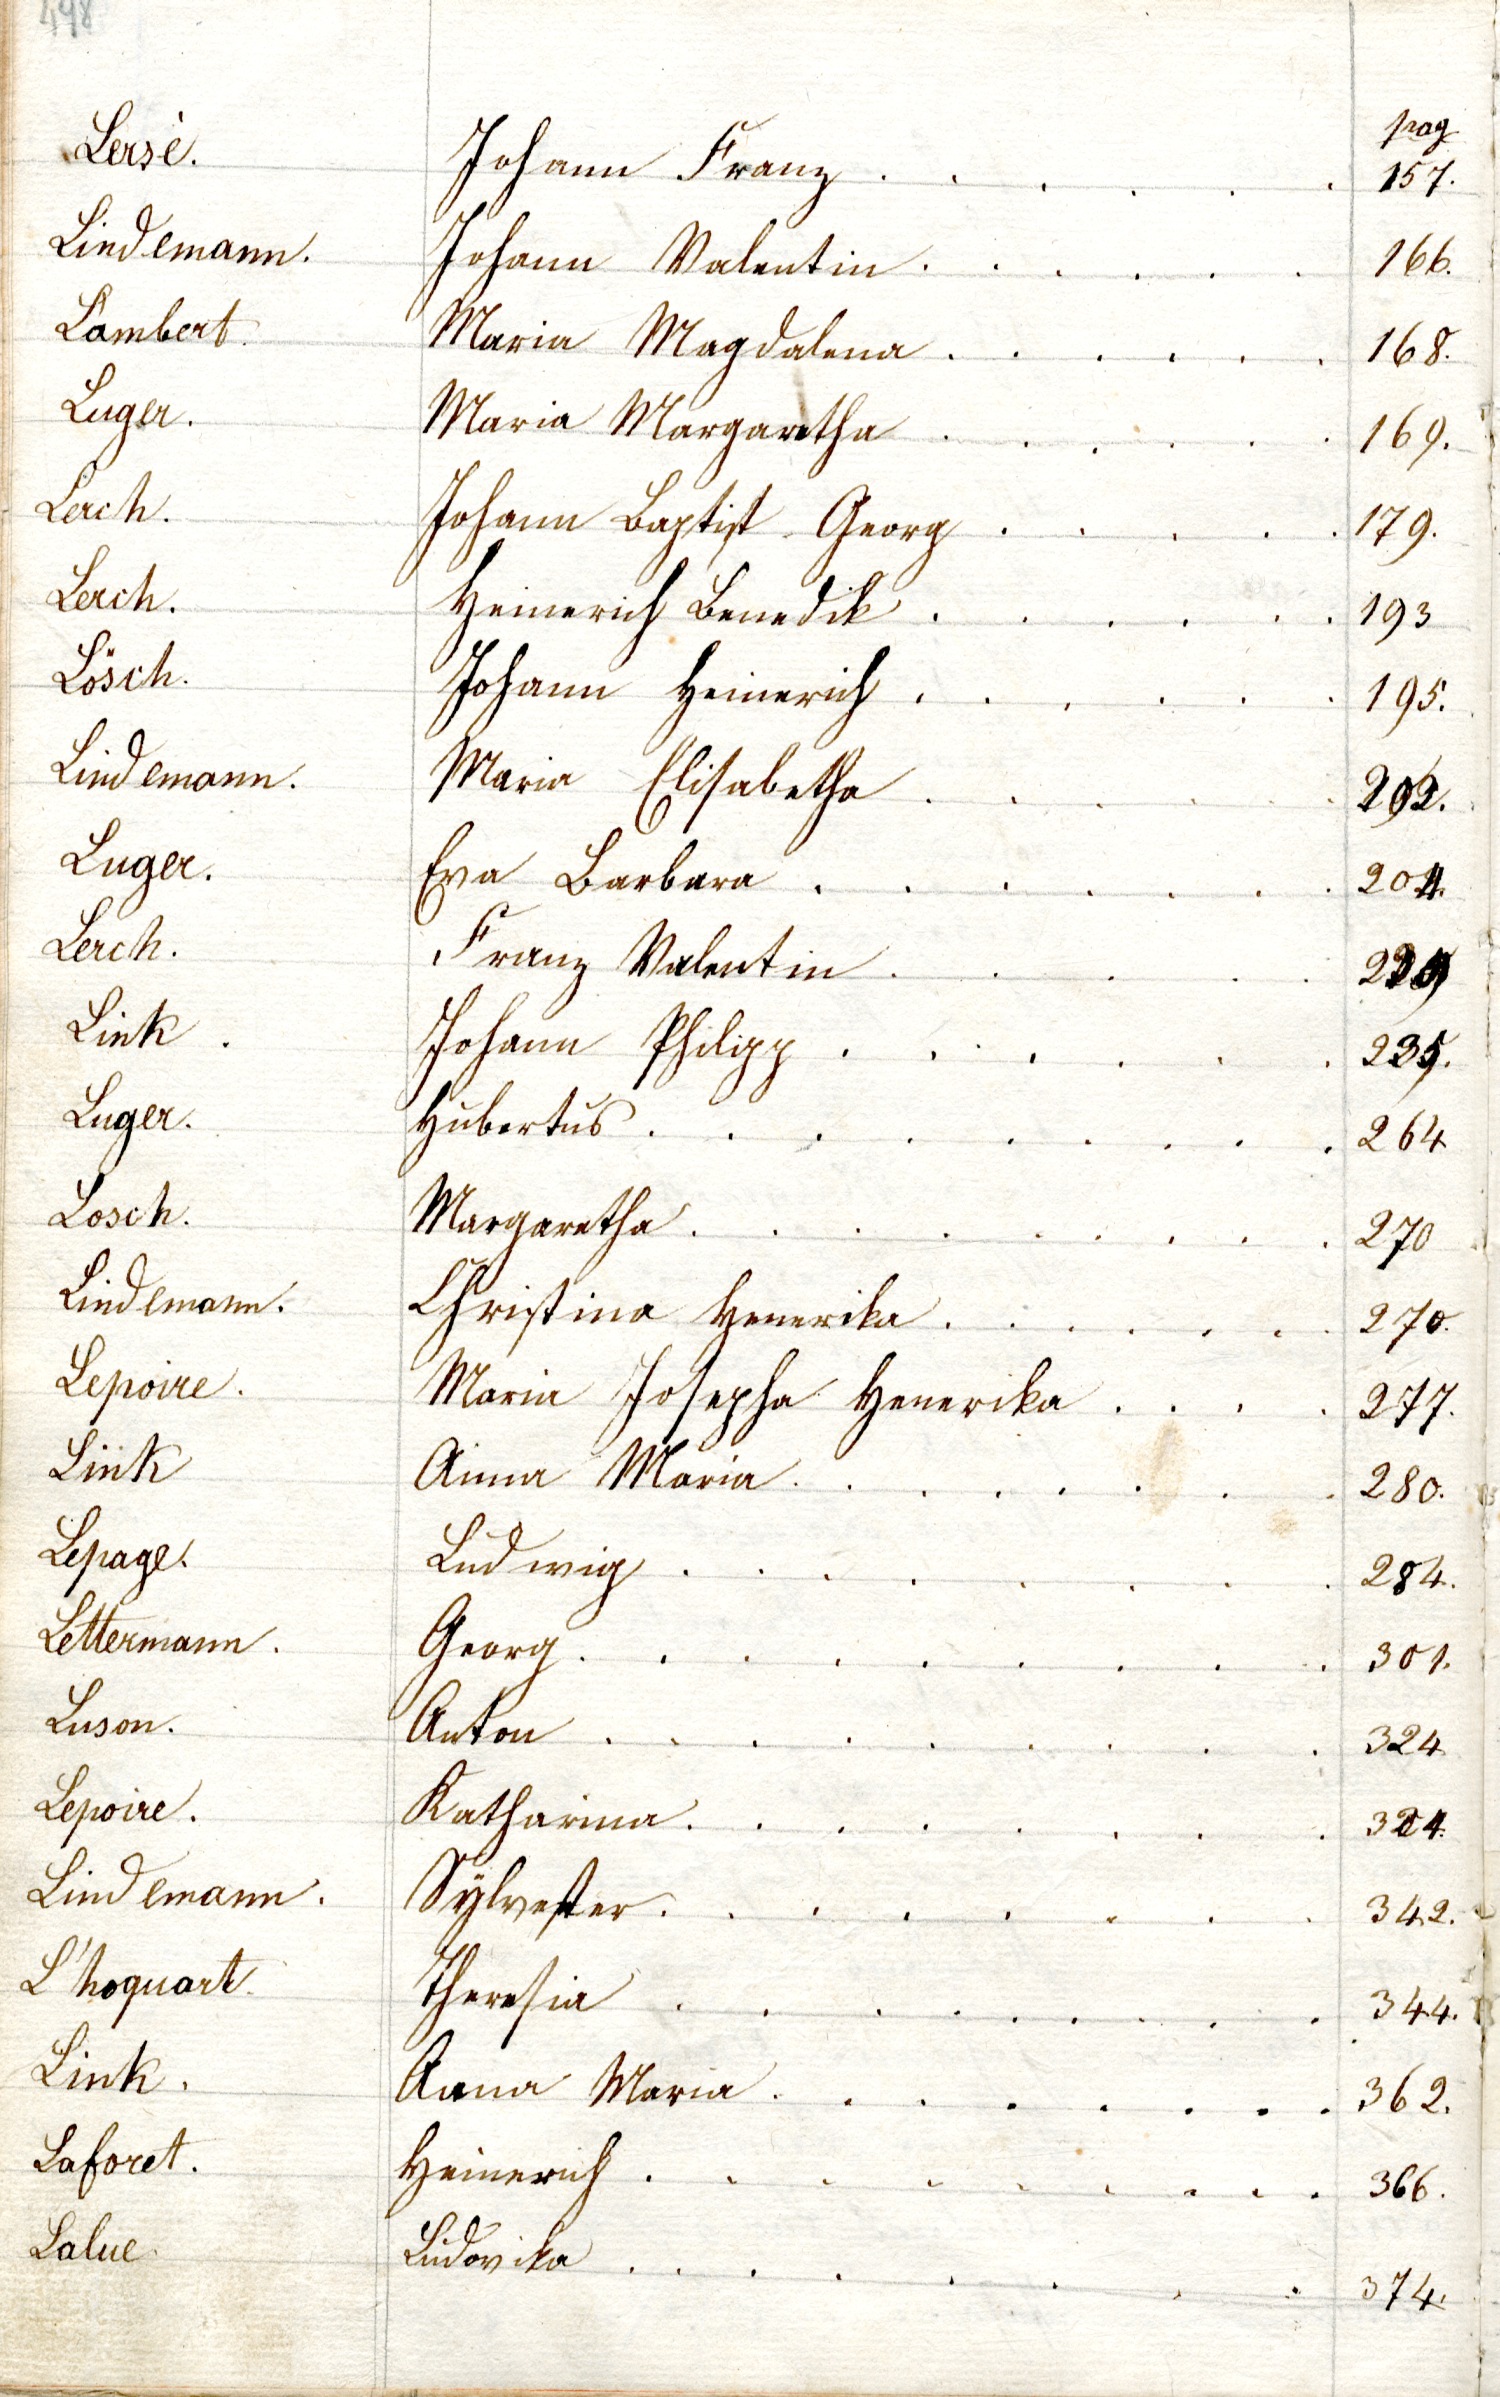 498
pag
Lersè. Johann Franz . . . . . . 157.
Lindemann. Johann Valentin . . . . . . 166.
Lambert. Maria Magdalena . . . . . . 168.
Luger. Maria Margaretha . . . . . . 169.
Lerch. Johann Baptist Georg . . . . . 179.
Lerch. Heinerich Benedik . . . . . . 193
Lösch. Johann Heinerich . . . . . . 195.
Lindemann. Maria Elisabetha . . . . . . 202.
Luger. Eva Barbara . . . . . . . 204.
Lerch. Franz Valentin . . . . . .
Link . Johann Philipp . . . . . . 235.
Luger. Hubertus . . . . . . . . . 264
Losch. Margaretha . . . . . . . . 270
Lindemann. Christina Henerika . . . . . . 270.
Lepoire. Maria Josepha Henerika . . . . 277.
Link Anna Maria . . . . . . . 280.
Lepage. Ludwig . . . . . . . . 284.
Lettermann. Georg . . . . . . . . . 301.
Luson. Anton . . . . . . . . . 324
Lepoire. Katharina . . . . . . . . 324.
Lindemann. Sÿlvester . . . . . . . . 342.
L'hoquart. Theresia . . . . . . . . 344.
Link. Anna Maria . . . . . . . . 362.
Laforet. Heinerich . . . . . . . . . 366.
Lalue. Ludovika . . . . . . . 374.